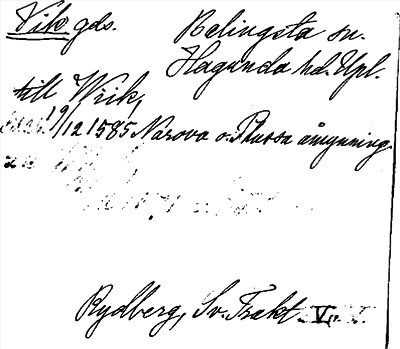 Vik gds. Belingsta sn.
Haganda hd. Upl.
till Wiik,
19/12 1585 Narova o. Plussa åmynning.
Rydberg, Sv. Trakt. V